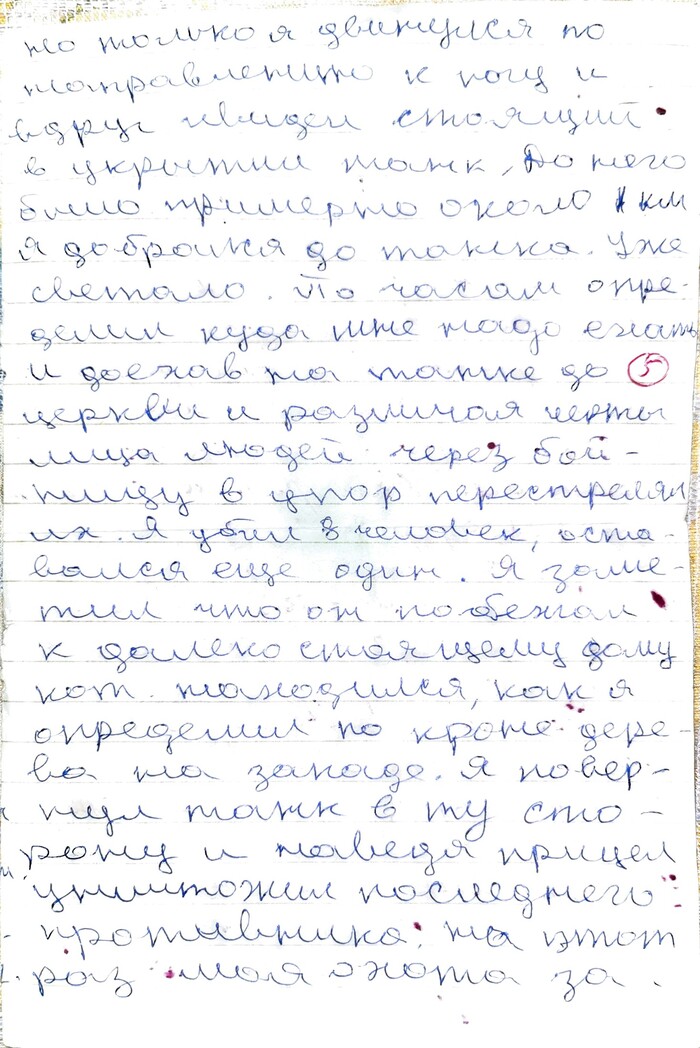 но только я двинулся по
направлению к югу и
вдруг увидел стоящий
в укрытии танк, До него
было примерно около 1 км
я добрался до танка. Уже
светало. По часам опре-
делил куда мне надо ехать
и доехав на танке до 5
церкви и различая черты
лица людей через бой-
ницу в упор перестрелял
их. Я убил 3 человек, оста-
вался еще один. Я заме-
тил что он побежал
к далеко стоящему дому
кот. находился, как я
определил по кроне дере-
ва на западе. Я повер-
нул танк в ту сто-
рону и наведя прицел
уничтожил последнего
противника. На этот
раз моя охота за